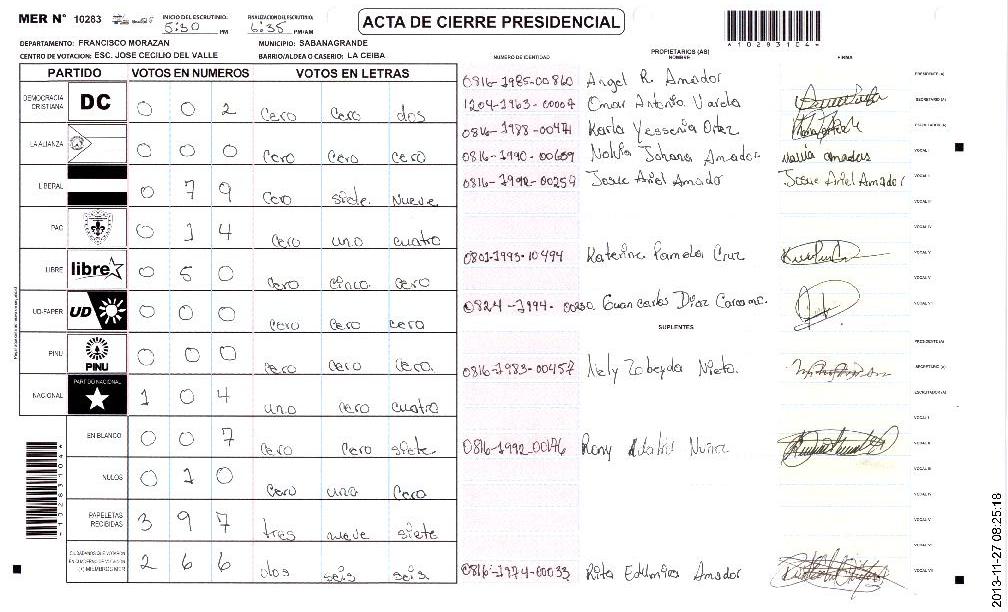 MER N° 10283 INICIO DEL ESCRUTINIO: 5:30 PM FINALIZACION DEL ESCRUTINIO: 6:35 PM/AM
ACTA DE CIERRE PRESIDENCIAL
*10283104*
DEPARTAMENTO: FRANCISCO MORAZAN MUNICIPIO: SABANAGRANDE
CENTRO DE VOTACION: ESC. JOSE CECILIO DEL VALLE BARRIO/ALDEA O CASERIO: LA CEIBA
PARTIDO VOTOS EN NUMEROS VOTOS EN LETRAS
DEMOCRACIA CRISTIANA DC 0 0 2 cero cero dos
LA ALIANZA 0 0 0 cero cero cero
LIBERAL 0 7 9 cero siete nueve
PAC 0 1 4 cero uno cuatro
LIBRE libre 0 5 0 cero cinco cero
UD-FAPER UD 0 0 0 cero cero cero
PINU PINU 0 0 0 cero cero cero
NACIONAL PARTIDO NACIONAL 1 0 4 uno cero cuatro
EN BLANCO 0 0 7 cero cero siete
NULOS 0 1 0 cero uno cero
PAPELETAS RECIBIDAS 3 9 7 tres nueve siete
CIUDADANOS QUE VOTARON EN CUADERNO DE VOTACION (+) MIEMBROS MER 2 6 6 dos seis seis
NUMERO DE IDENTIDAD PROPIETARIOS (AS) NOMBRE FIRMA
0816-1985-00860 Angel R. Amador PRESIDENTE (A)
1204-1963-00007 Omar Antonio Varela SECRETARIO (A)
0816-1988-00474 Karla Yessenia Ortez ESCRUTADOR (A)
0816-1990-00609 Nolvia Johana Amador Nolvia amador VOCAL I
0816-1992-00259 Josue Ariel Amador Josue Ariel Amador VOCAL II
VOCAL III
VOCAL IV
0801-1993-10494 Katerine Pamela Cruz VOCAL V
0824-1994- Guan carlos Diaz VOCAL VI
SUPLENTES
PRESIDENTE (A)
0816-1983-00457 Nely Zobeyda Nieto. SECRETARIO (A)
ESCRUTADOR (A)
VOCAL I
0816-1992-00146 Rony Adalid Nuñez VOCAL II
VOCAL III
VOCAL IV
VOCAL V
VOCAL VI
0816-1974-00033 Rita Edelmira Amador VOCAL VII
*10283104*
2013-11-27 08:25:18